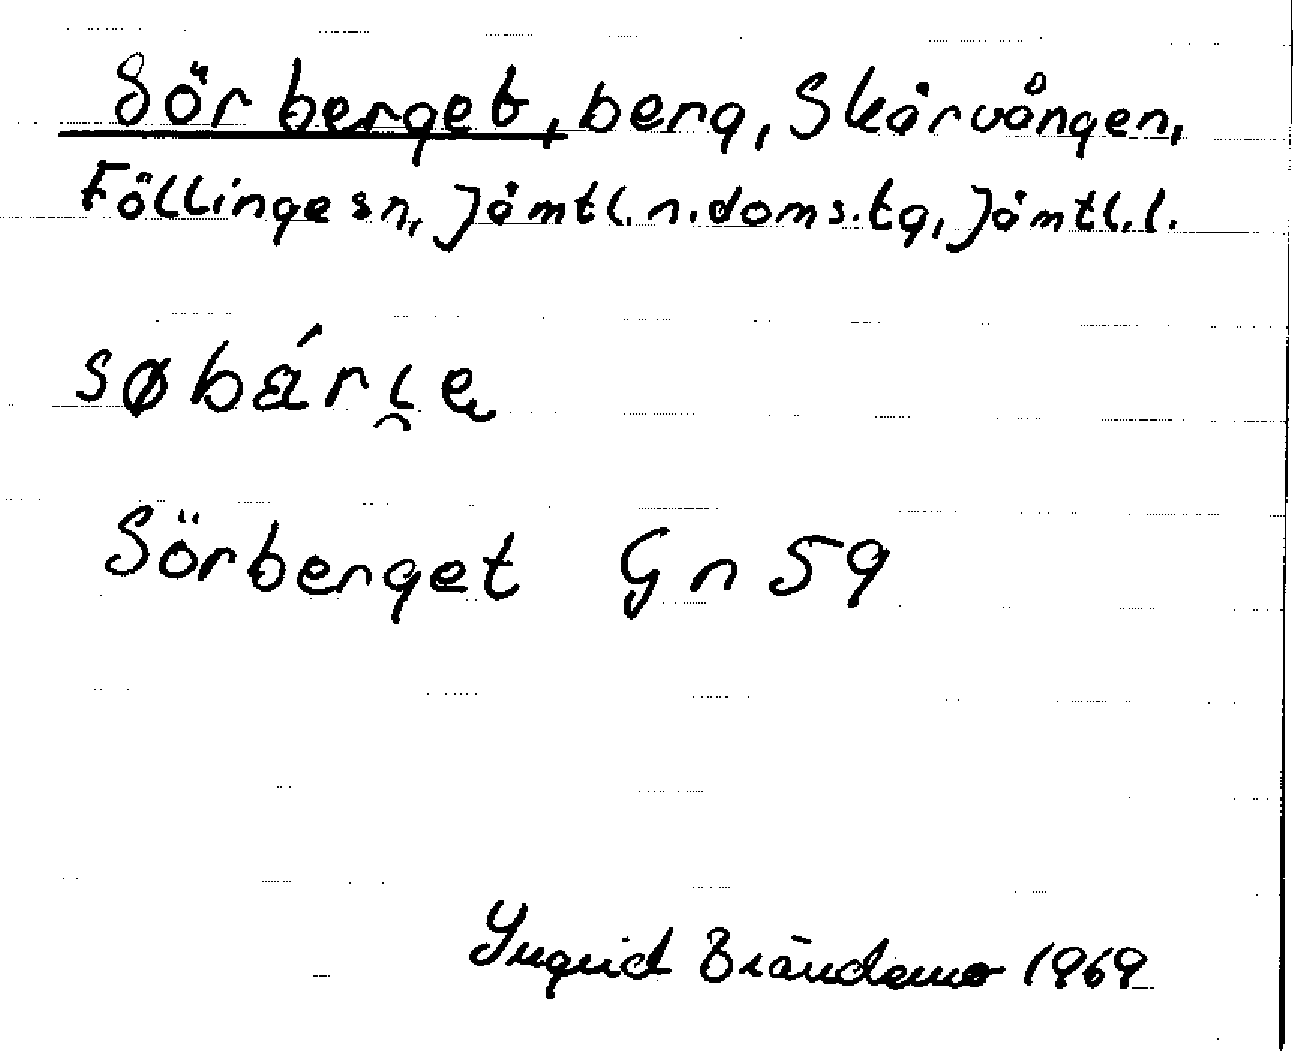 Sörberget, berg, Skärvången,
Föllinge sn, Jämtl. n. doms. tg, Jämtl. l.
Sörberget Gn 59
Ingrid Brändemo 1969